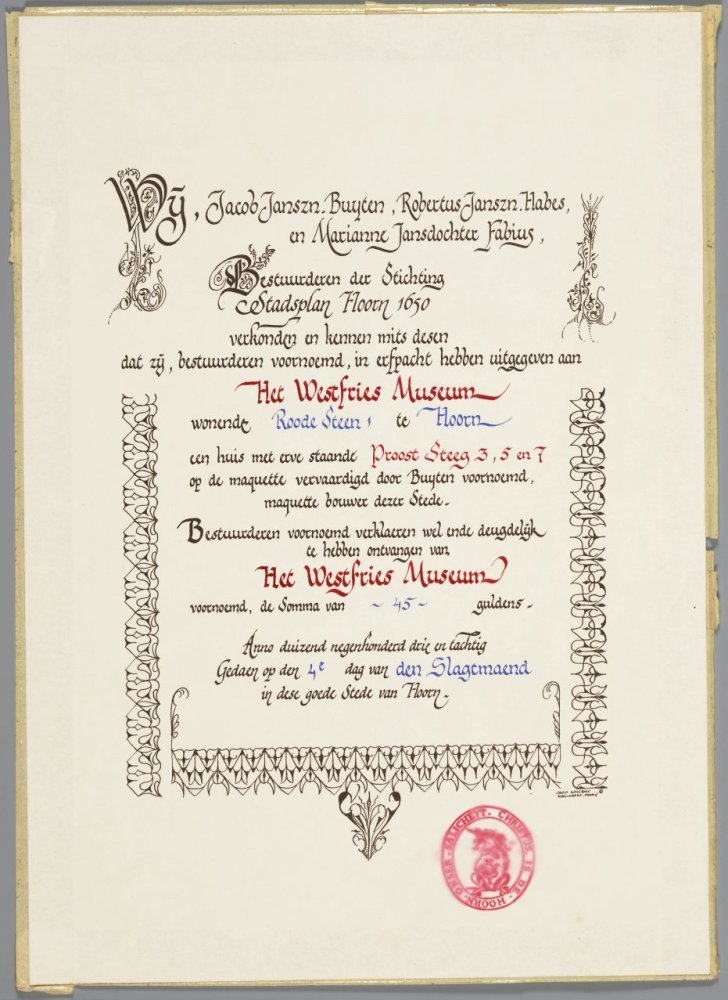 Wÿ, Jacob Janszn. Buyten, Robertus Janszn. Habes,
en Marianne Jansdochter Fabius,
Bestuurderen der Stichting
Stadsplan Hoorn 1650
verkonden en kennen mits desen
dat zÿ, bestuurderen voornoemd, in erfpacht hebben uitgegeven aan
Het Westfries Museum
wonende Roode Steen 1 te Hoorn
een huis met erve staande Proost Steeg 3, 5 en 7
op de maquette vervaardigd door Buyten voornoemd,
maquette bouwer dezer Stede.
Bestuurderen voornoemd verklaeren wel ende deugdelÿk
te hebben ontvangen van
Het Westfries Museum
voornoemd, de Somma van ~ 45 ~ guldens.
Anno duizend negenhonderd drie en tachtig
Gedaen op den 4e dag van den Slagtmaend
in dese goede Stede van Hoorn.
CHRISTUS IS DE HOORN ONSER SALICHEYT